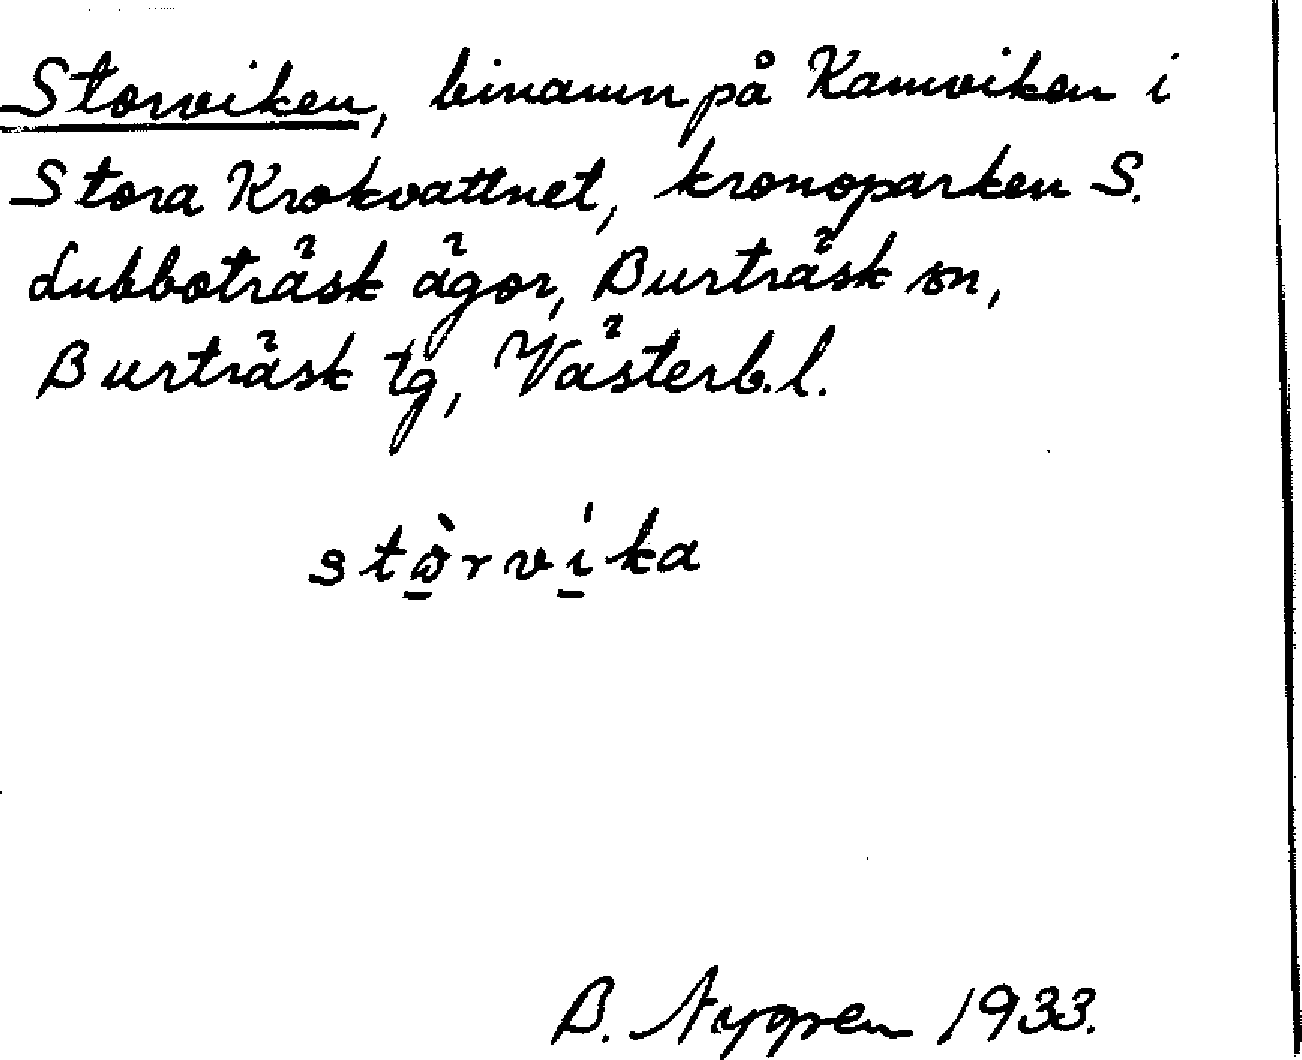 Storviken, binamn på Kamviken i
Stora Krokvattnet, kronoparken S.
Lubboträsk ägor, Burträsk sn,
Burträsk tg, Västerb. l.
stòrvíka
B. Nygren 1933.